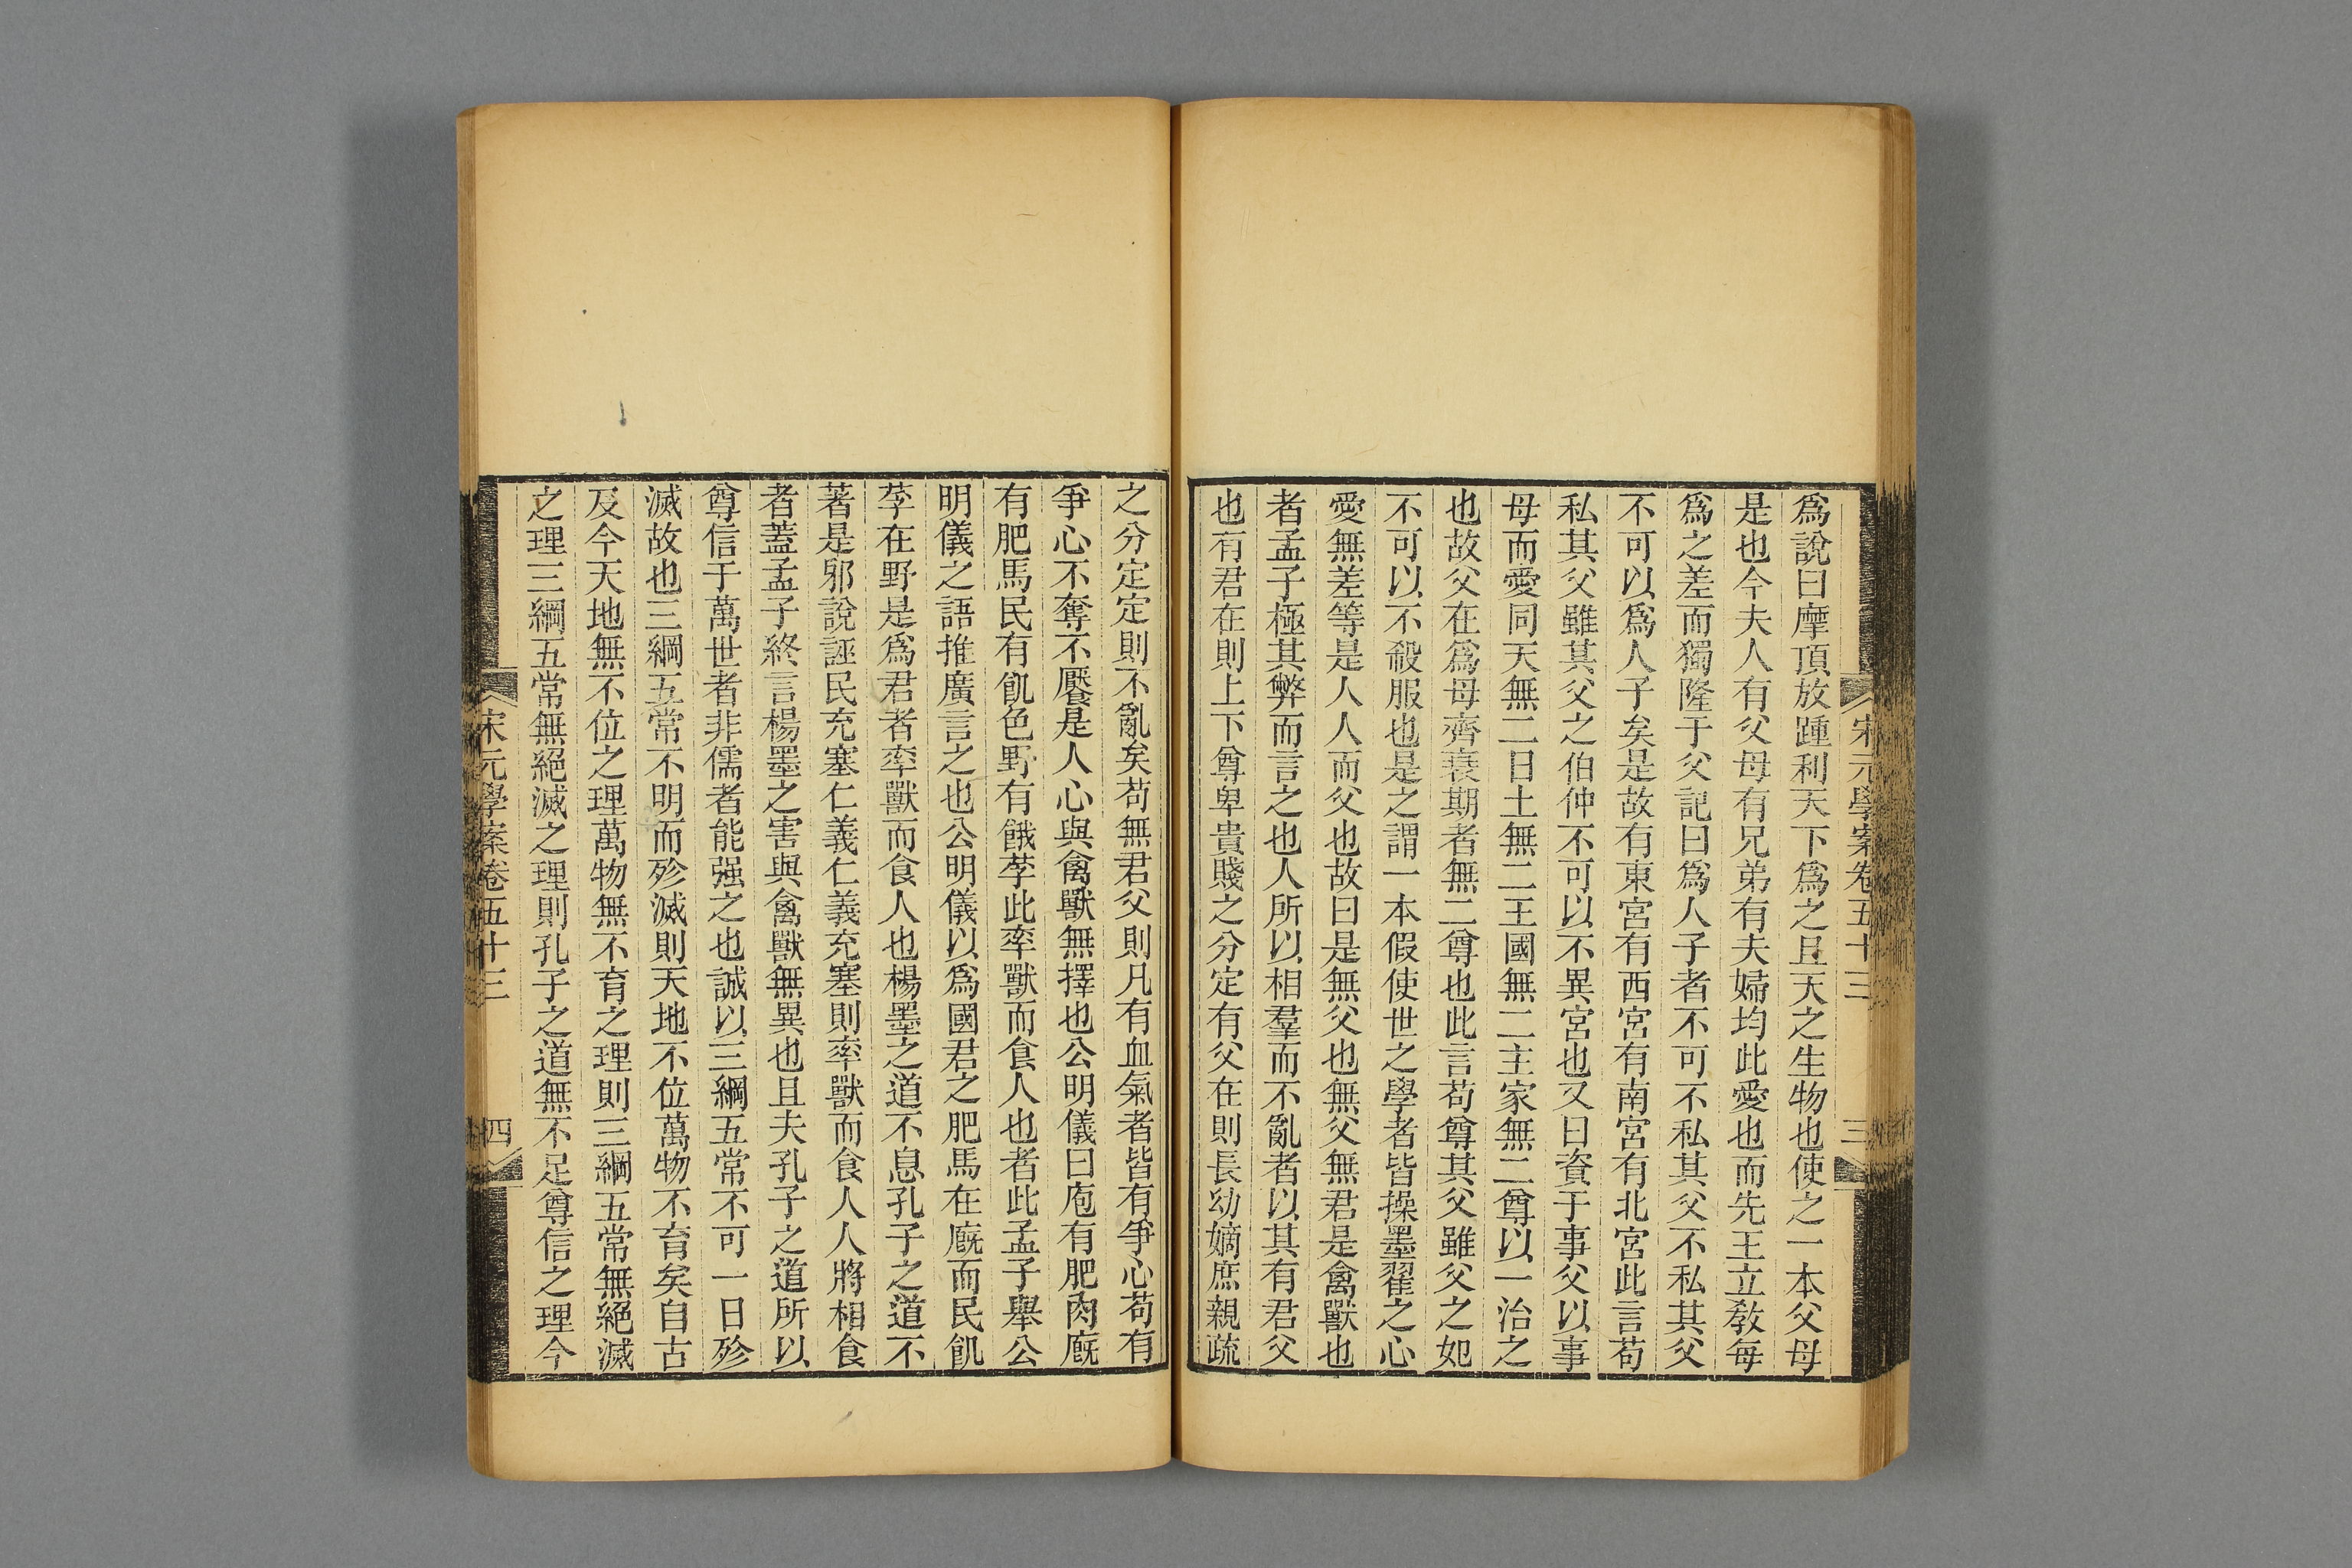 宋元學案卷五十三
三
爲說曰摩頂放踵利天下爲之且天之生物也使之一本父母
是也今夫人有父母有兄弟有夫婦均此愛也而先王立教每
爲之差而獨隆于父記曰爲人子者不可不私其父不私其父
不可以爲人子矣是故有東宮有西宮有南宮有北宮此言苟
私其父雖其父之伯仲不可以不異宮也又曰資于事父以事
母而愛同天無二日土無二王國無二主家無二尊以一治之
也故父在爲母齊衰期者無二尊也此言苟尊其父雖父之妃
不可以不殺服也是之謂一本假使世之學者皆操墨翟之心
愛無差等是人人而父也故曰是無父也無父無君是禽獸也
者孟子極其弊而言之也人所以相羣而不亂者以其有君父
也有君在則上下尊卑貴賤之分定有父在則長幼嫡庶親疏
之分定定則不亂矣苟無君父則凡有血氣者皆有爭心苟有
爭心不奪不饜是人心與禽獸無擇也公明儀曰庖有肥肉廐
有肥馬民有飢色野有餓莩此率獸而食人也者此孟子舉公
明儀之語推廣言之也公明儀以爲國君之肥馬在廐而民飢
莩在野是爲君者率獸而食人也楊墨之道不息孔子之道不
著是邪說誣民充塞仁義仁義充塞則率獸而食人人將相食
者蓋孟子終言楊墨之害與禽獸無異也且夫孔子之道所以
尊信于萬世者非儒者能强之也誠以三綱五常不可一日殄
滅故也三綱五常不明而殄滅則天地不位萬物不育矣自古
及今天地無不位之理萬物無不育之理則三綱五常無絕滅
之理三綱五常無絕滅之理則孔子之道無不足尊信之理今
宋元學案卷五十三
四